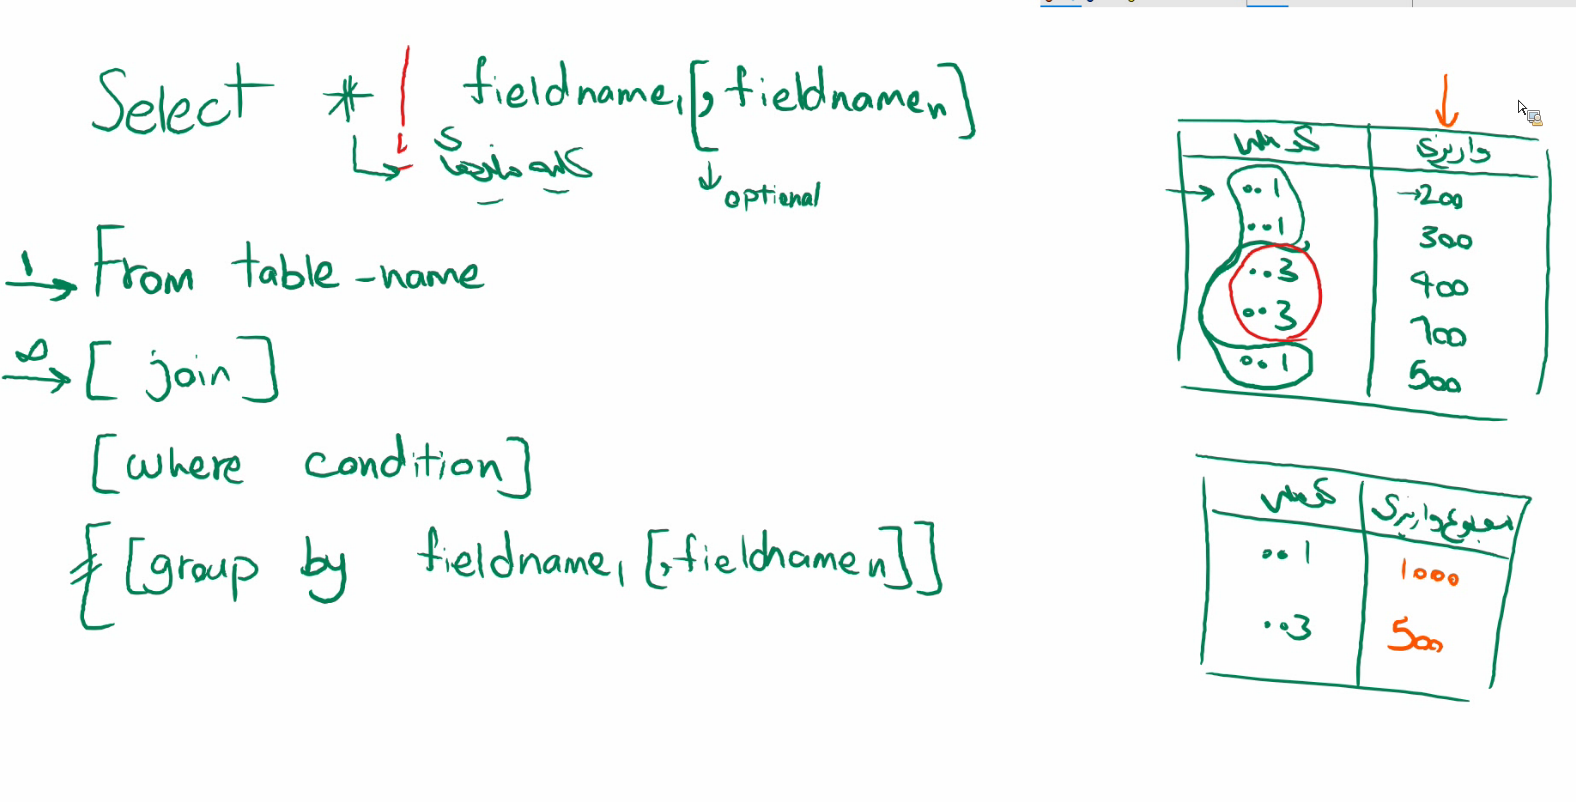 Select * | fieldname1 [, fieldnamen]
یا
کلیه فیلدها
optional
1
From table-name
∞
[ join ]
[where condition]
[group by fieldname1 [,fieldnamen]]
کدملی واریزی
001 200
001 300
003 400
003 700
001 500
کدملی مجموع واریزی
001 1000
003 500